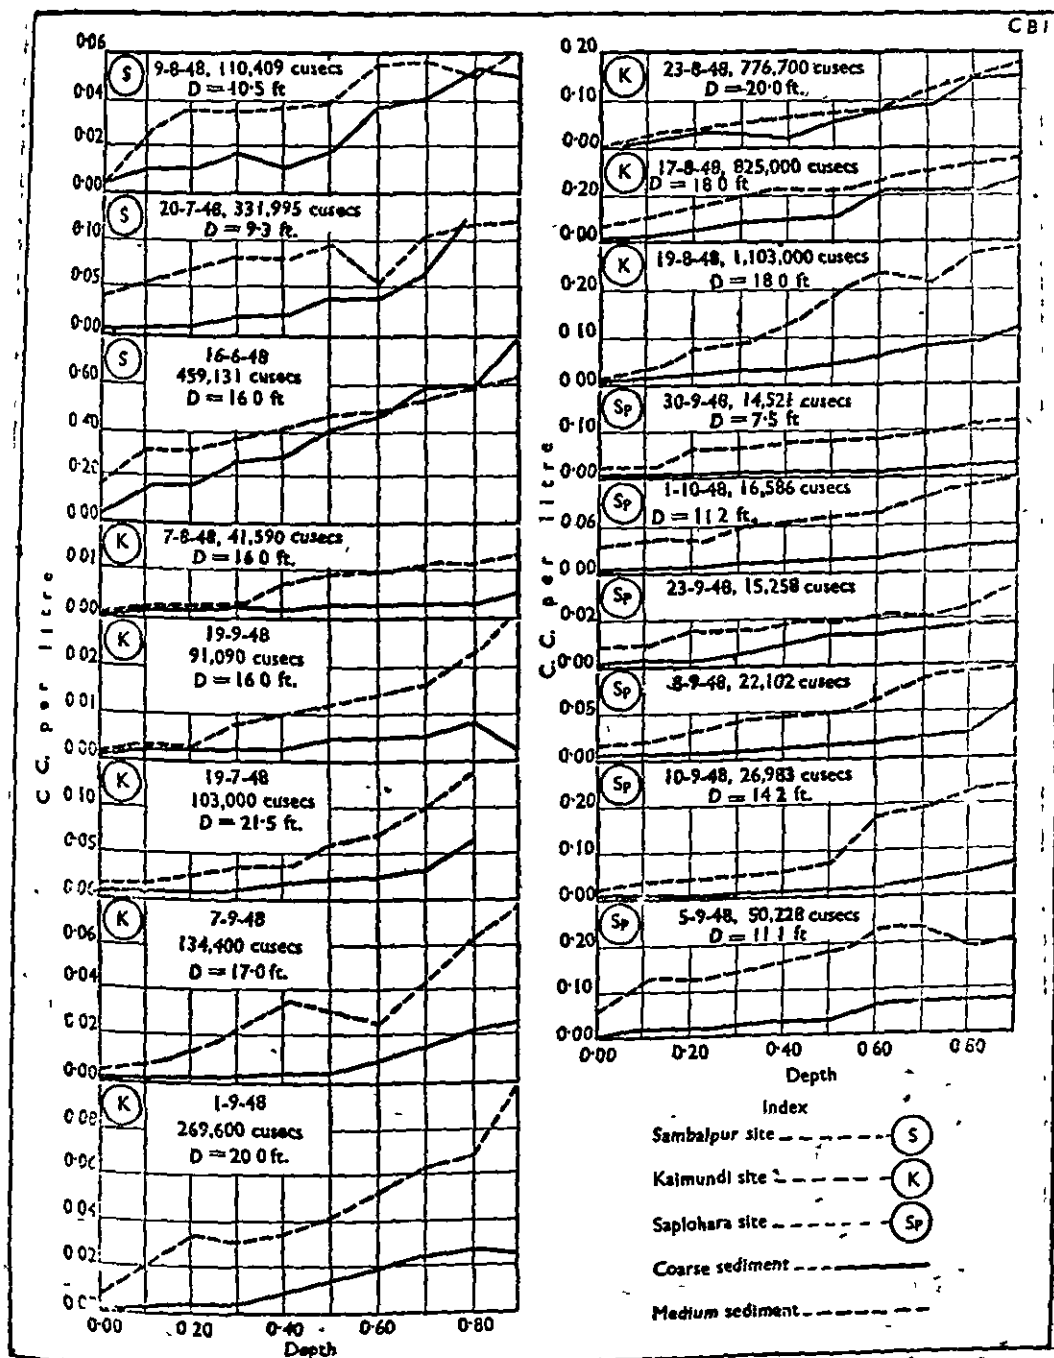 CBI
C.C. per litre
0·06
0·04
0·02
0·00
S
9-8-48, 110,409 cusecs
D = 10·5 ft
0·10
0·05
0·00
S
20-7-48, 331,995 cusecs
D = 9·3 ft.
0·60
0·40
0·20
0·00
S
16-6-48
459,131 cusecs
D = 16 0 ft
0·01
0·00
K
7-8-48, 41,590 cusecs
D = 16 0 ft.
0 02
0 01
0·00
K
19-9-48
91,090 cusecs
D = 16 0 ft.
0 10
0·05
K
19-7-48
103,000 cusecs
D = 21·5 ft.
0·06
0·04
0·02
0·00
K
7-9-48
134,400 cusecs
D = 17·0 ft.
0 08
0·06
0 04
0 02
K
1-9-48
269,600 cusecs
D = 20 0 ft.
0·00 0 20 0·40 0·60 0·80
Depth
C.C. per litre
0·20
0·10
0·00
K
23-8-48, 776,700 cusecs
D = 20·0 ft.
0·20
0·00
K
17-8-48, 825,000 cusecs
D = 18 0 ft
0·20
0·10
0·00
K
19-8-48, 1,103,000 cusecs
D = 18 0 ft
0·10
0·00
Sp
30-9-48, 14,521 cusecs
D = 7·5 ft
0·06
0·00
Sp
1-10-48, 16,586 cusecs
D = 11 2 ft.
0·02
0·00
Sp
23-9-48, 15,258 cusecs
0·05
0·00
Sp
8-9-48, 22,102 cusecs
0·20
0·10
0·00
Sp
10-9-48, 26,983 cusecs
D = 14 2 ft.
0·20
0·10
0·00
Sp
5-9-48, 50,228 cusecs
D = 11 1 ft.
0·00 0·20 0·40 0·60 0·80
Depth
Index
Sambalpur site S
Kaimundi site K
Saplohara site Sp
Coarse sediment
Medium sediment